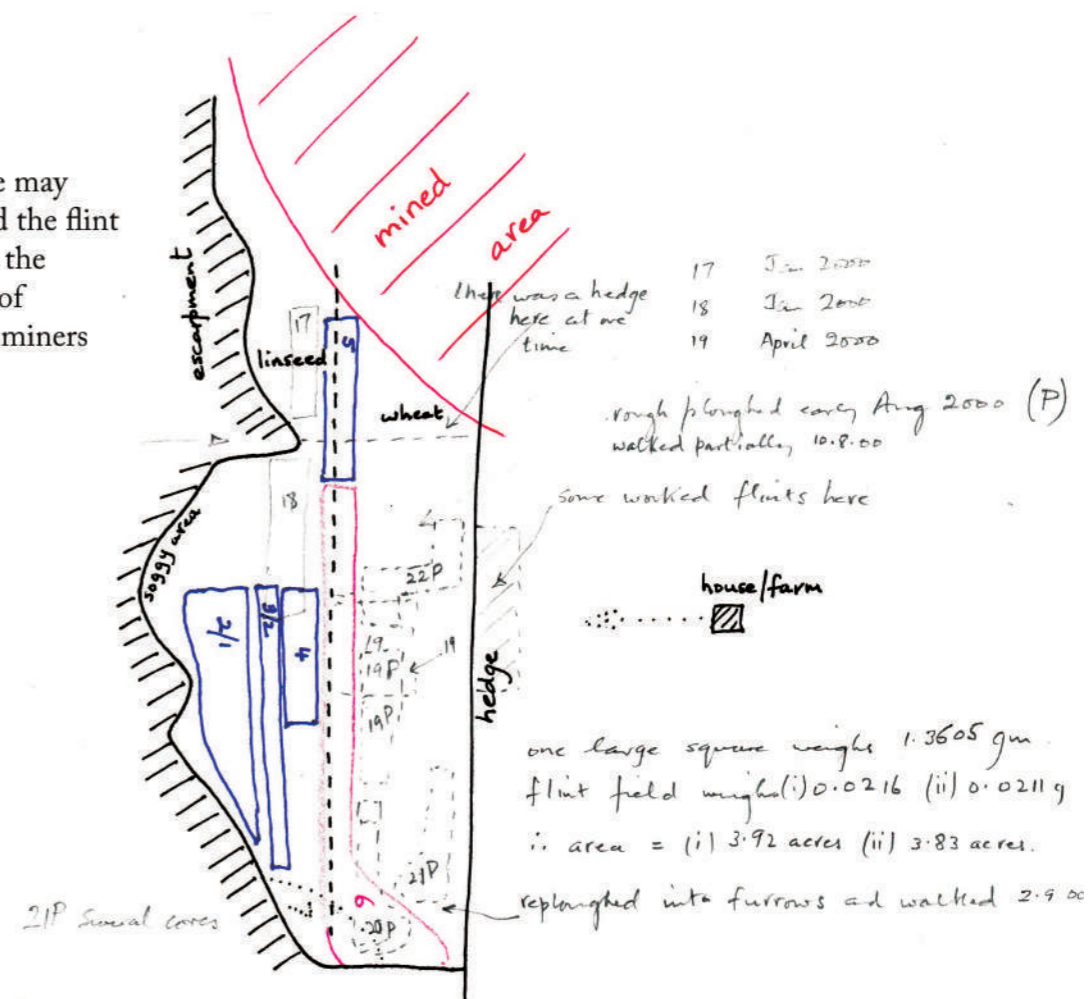 e may
d the flint
the
of
miners
mined
area
escarpment
there was a hedge
here at one
time
17 Jan 2000
18 Jan 2000
19 April 2000
17
5
linseed
wheat
rough ploughed early Aug 2000 (P)
walked partially 10.8.00
18
some worked flints here
soggy area
22P
house/farm
1/2
2/3
4
19
19P
19
19P
hedge
one large square weighs 1.3605 gm
flint field weighs (i) 0.0216 (ii) 0.0211 g
∴ area = (i) 3.92 acres (ii) 3.83 acres.
21P
6
reploughed into furrows and walked 2.9.00
21P Several cores
20P